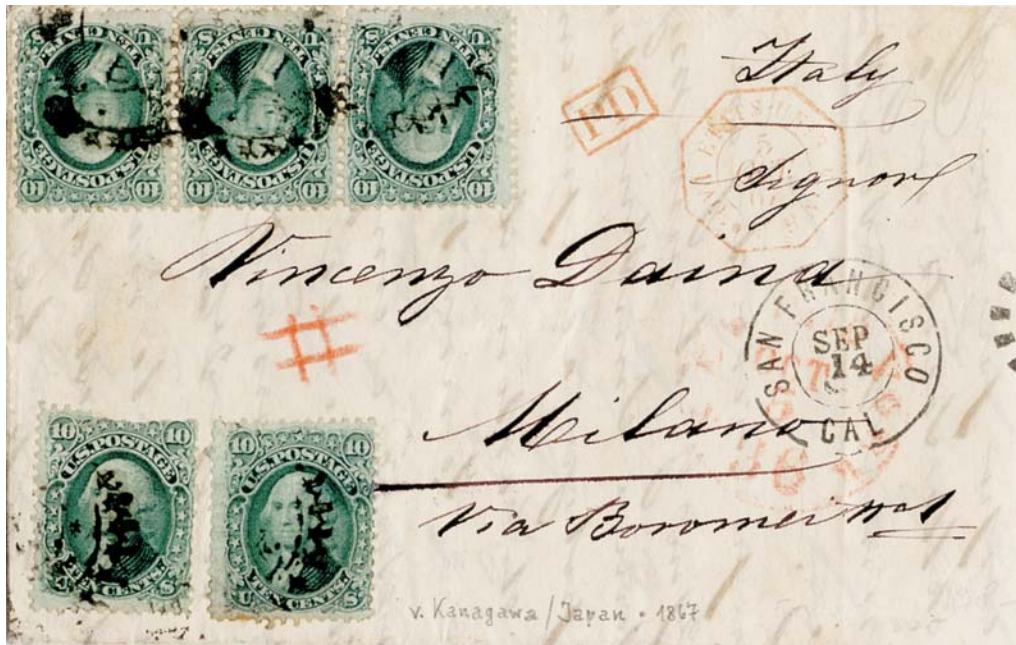 U.S. POSTAGE
10 10
TEN CENTS
U S
U.S. POSTAGE
10 10
TEN CENTS
U S
U.S. POSTAGE
10 10
TEN CENTS
U S
PD
Italy
Signore
Vincenzo Daina
SAN FRANCISCO
SEP
14
CAL
Milano
Via Boromei No 1
10 10
U.S. POSTAGE
TEN CENTS
U S
10 10
U.S. POSTAGE
TEN CENTS
U S
v. Kanagawa/Japan • 1867